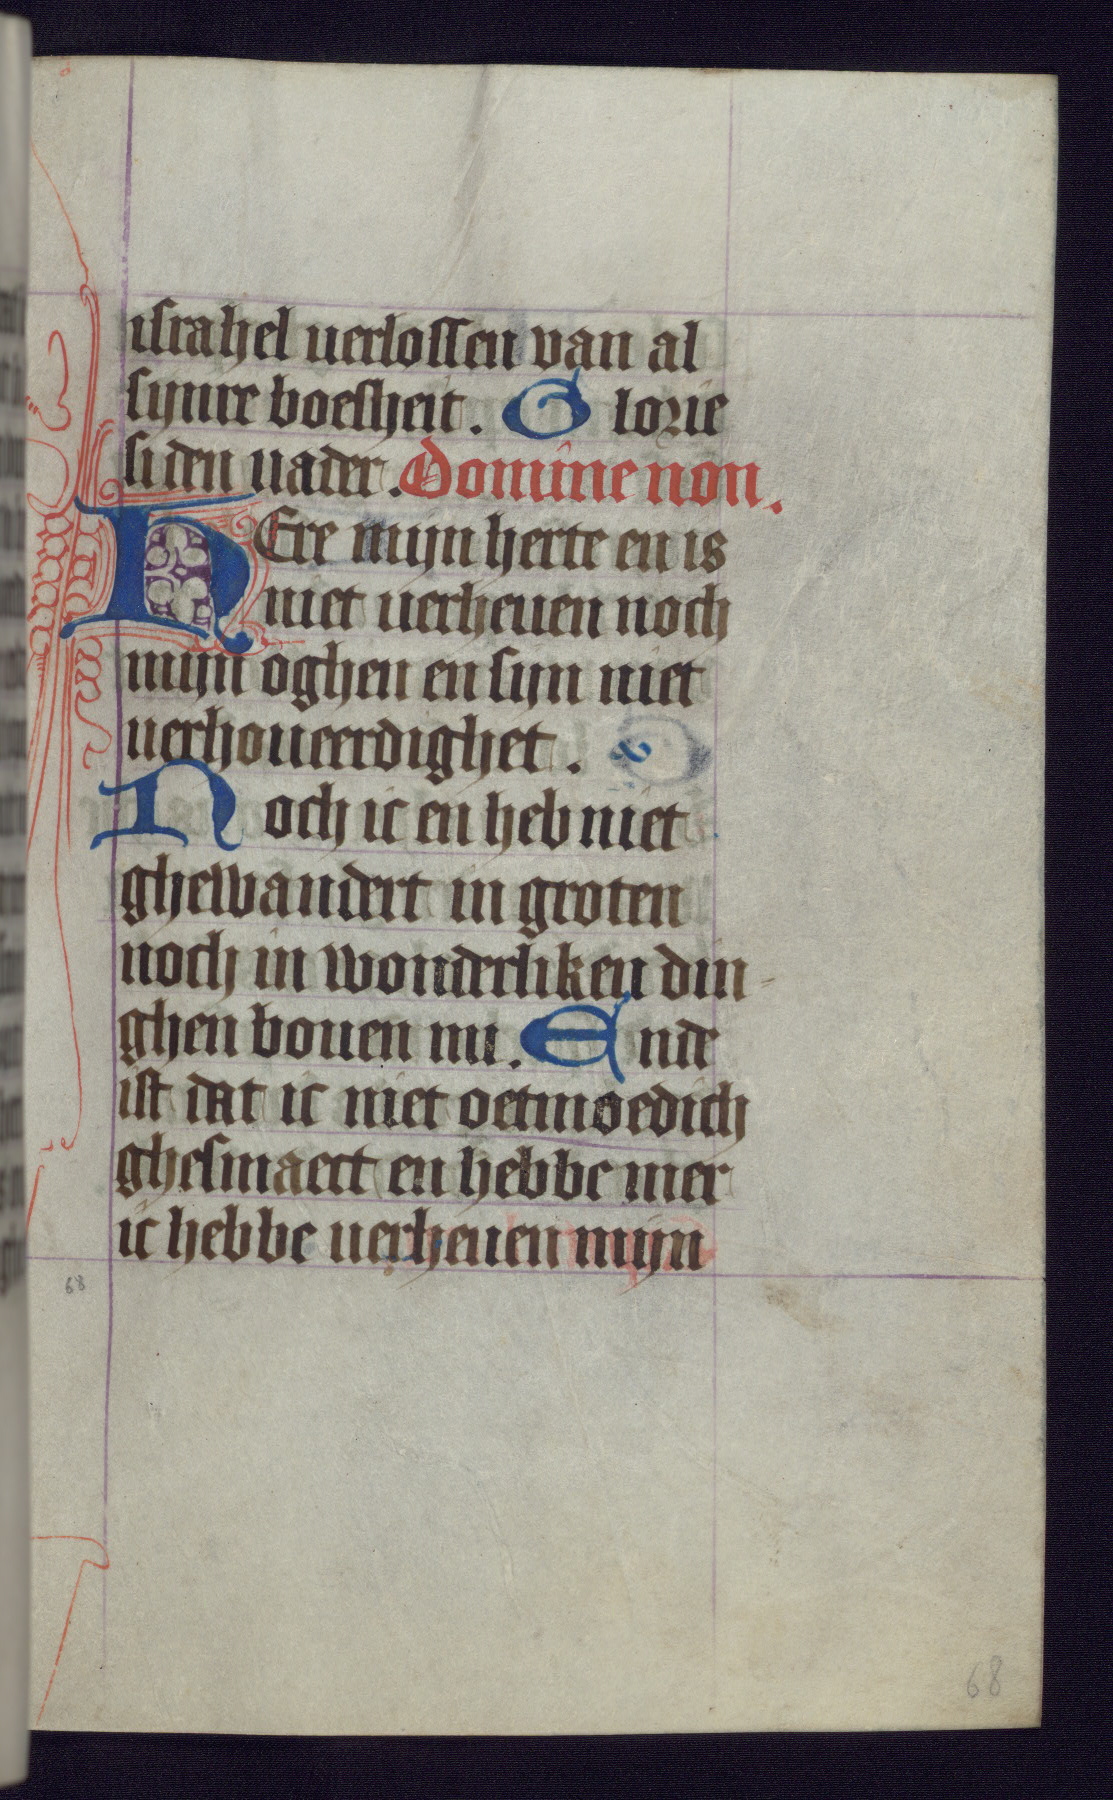 israhel uerlossen van al
synre boesheit. Glorie
si den uader. Domine non.
HEre mijn herte en is
niet uerheuen noch
mijn oghen en sijn niet
uerhoueerdighet.
Noch ic en heb niet
ghewandert in groten
noch in wonderliken din-
ghen bouen mi. Ende
ist dat ic niet oetmoedich
ghesmaect en hebbe mer
ic hebbe uerheuen mijn
68
68